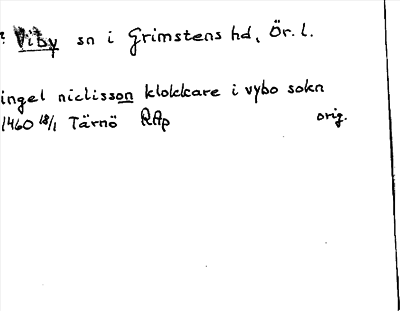 ? Viby sn i Grimstens hd, Ör. l.
ingel niclisson klokkare i vybo sokn
1460 18/1 Tärnö RAp orig.